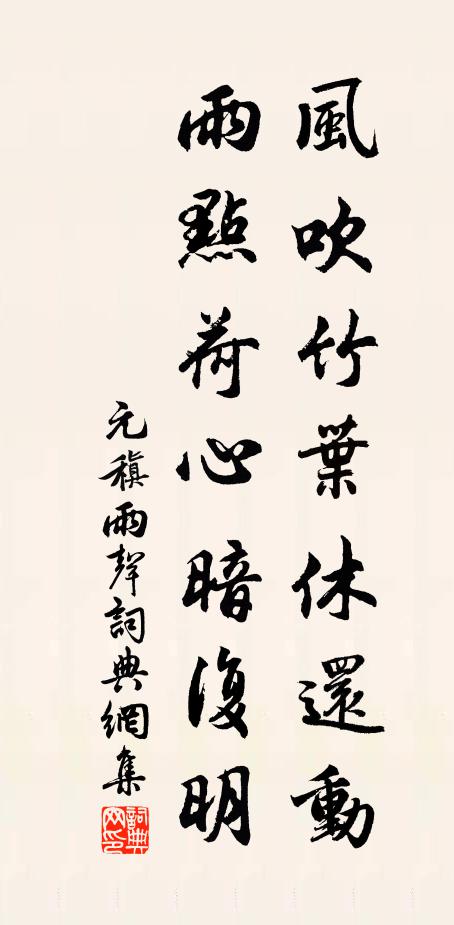 風吹竹葉休還動
雨點荷心暗復明
元稹雨聲詞典網集
詞典網印